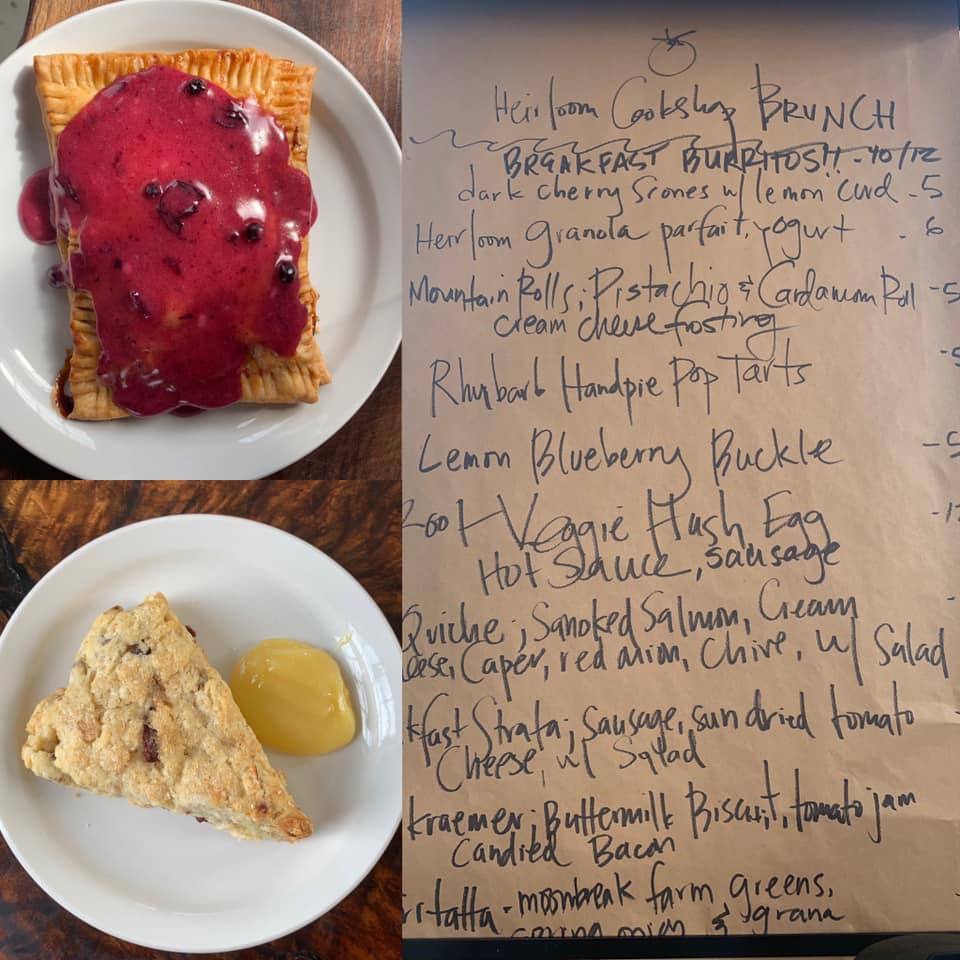 Heirloom Cookshop BRUNCH
BREAKFAST BURRITOS!! - 10/12
dark cherry Scones w/ lemon curd - 5
Heirloom granola parfait, yogurt - 6
Mountain Rolls; Pistachio & Cardamom Roll - 5
cream cheese frosting
Rhubarb Handpie Pop Tarts
Lemon Blueberry Buckle - 5
Root Veggie Hash Egg
Hot Sauce, sausage
Quiche; Smoked Salmon, Cream
eese, Caper, red onion, Chive, w/ Salad
kfast Strata; Sausage, sun dried tomato
Cheese, w/ Salad
kraemer; Buttermilk Biscuit, tomato jam
Candied Bacon
rittatta - moonbreak farm greens,
spring onion & grana